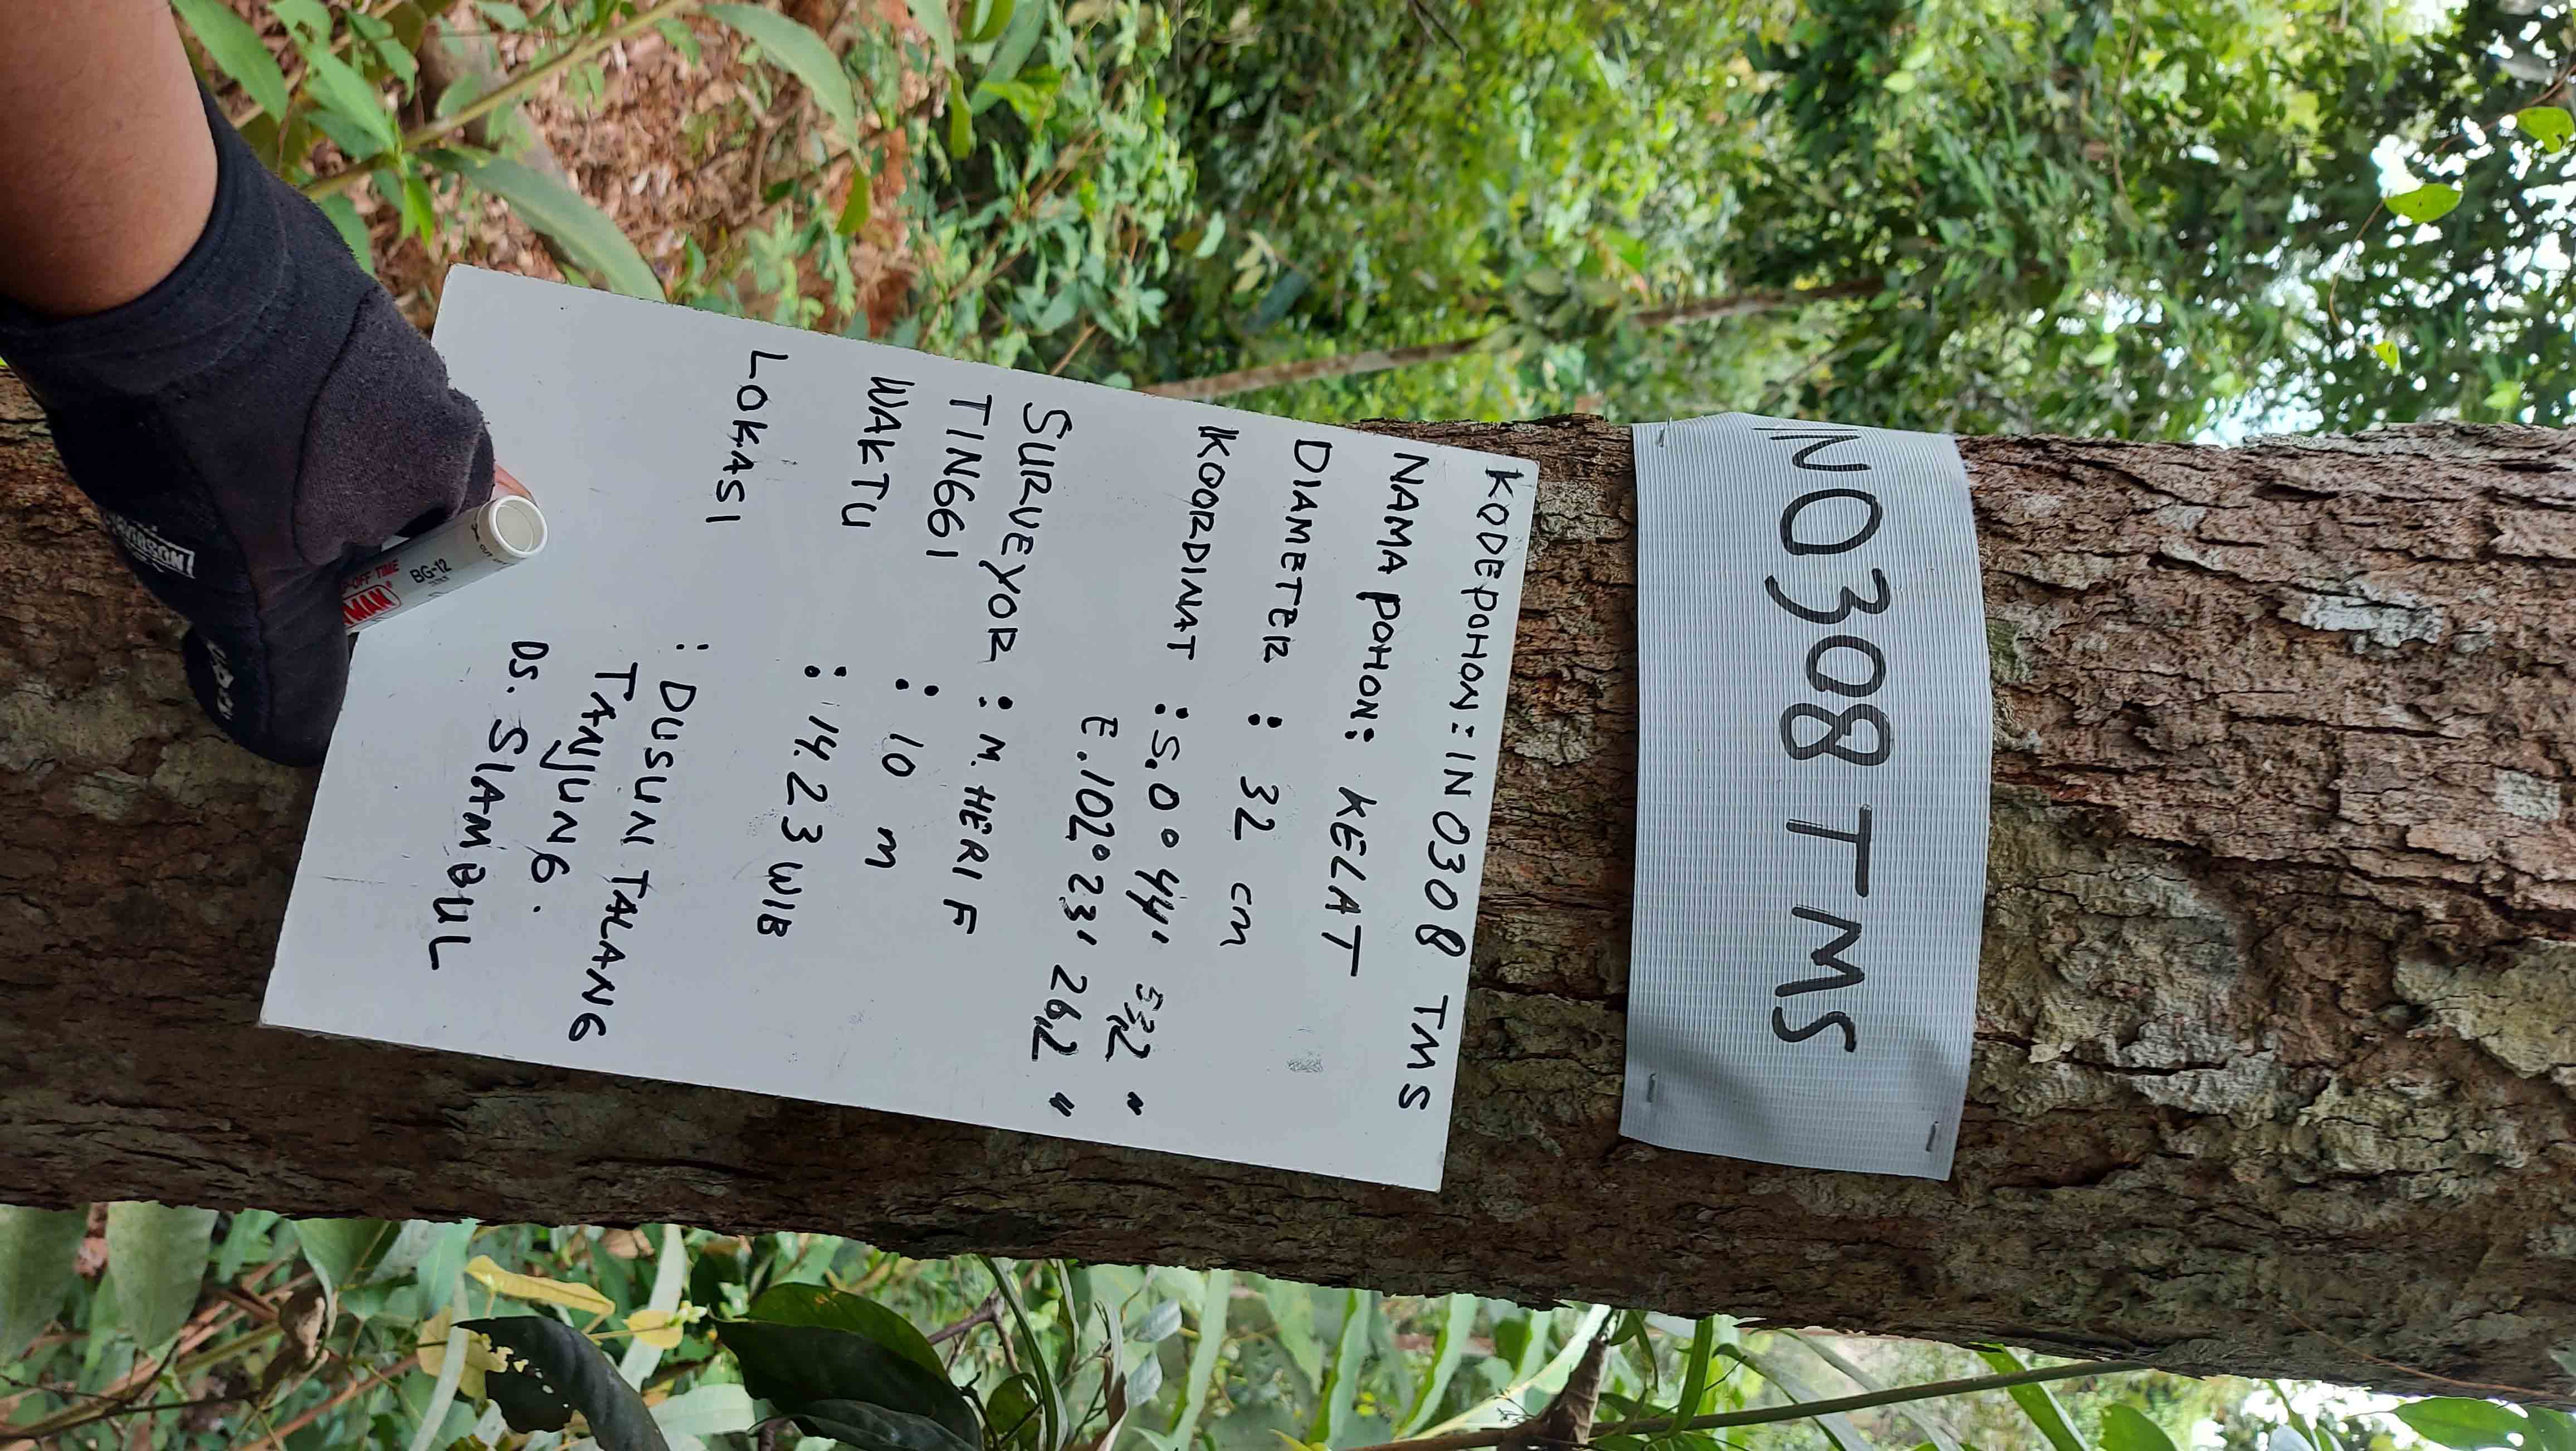 IN0308 TMS
KODE POHON : IN 0308 TMS
NAMA POHON : KELAT
DIAMETER : 32 cm
KOORDINAT : S. 0° 44' 53,2 "
E. 102° 23' 26,2 "
SURVEYOR : M. HERI F
TINGGI : 10 m
WAKTU : 14.23 WIB
LOKASI : DUSUN TALANG
TANJUNG.
DS. SIAMBUL
BG-12